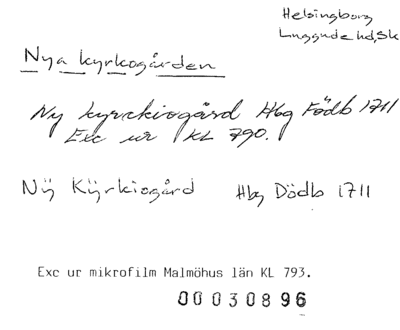 Helsingborg
Luggude hd, Sk
Nya kyrkogården
Ny kyrckiogård Hbg Födb 1711
Exc ur KL 790.
Nÿ Kÿrkiogård Hbg Dödb 1711
Exc ur mikrofilm Malmöhus län KL 793.
00030896